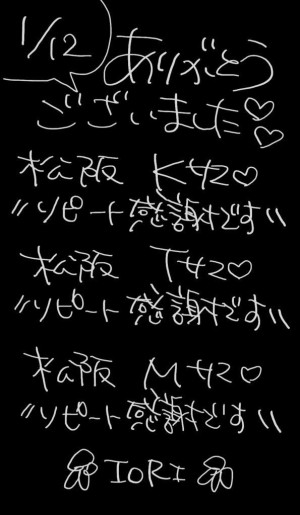 1/12
ありがとう
ございました♡♡
松阪 Kサマ♡
〃リピート感謝です〃
松阪 Tサマ♡
〃リピート感謝です〃
松阪 Mサマ♡
〃リピート感謝です〃
IORI